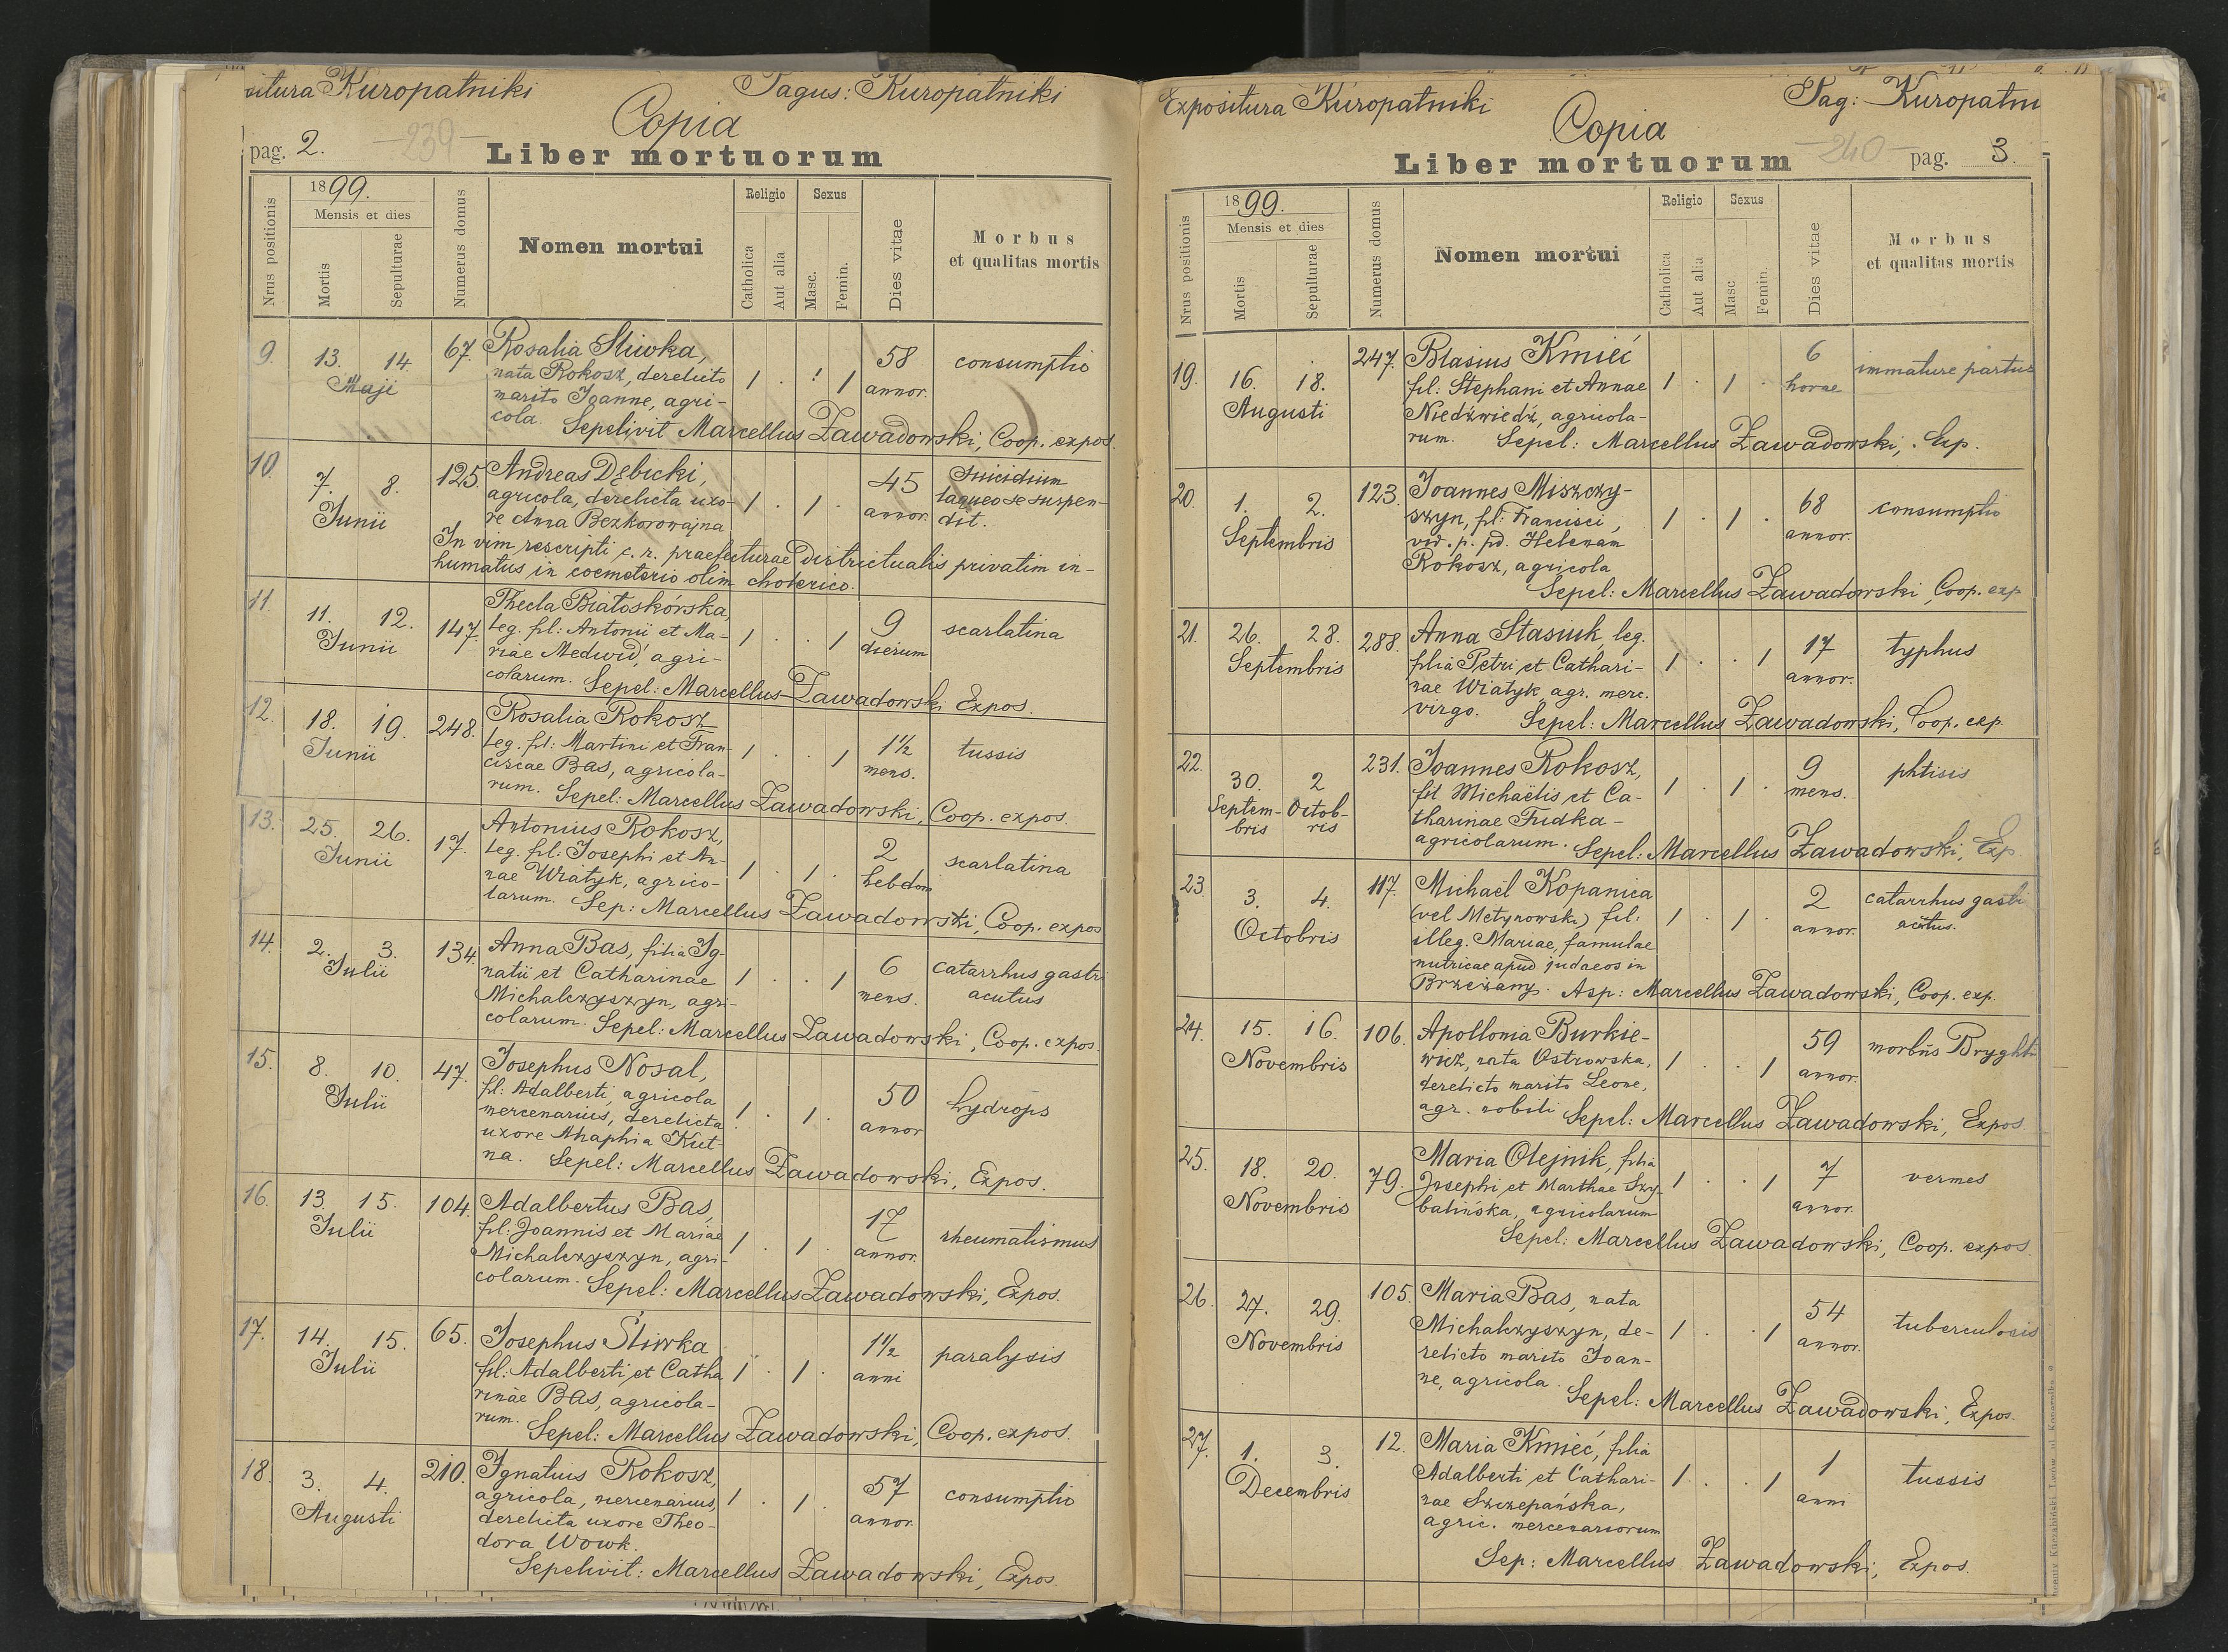 situra Kuropatniki Pagus: Kuropatniki
Copia
pag. 2. -239-
Liber mortuorum
Nrus positionis
1899.
Mensis et dies
Mortis
Sepulturae
Numerus domus
Nomen mortui
Religio
Catholica
Aut alia
Sexus
Masc.
Femin.
Dies vitae
Morbus
et qualitas mortis
9. 13. 14. Maji 67. Rosalia Sliwka, 1 . . 1 58 annor. consumptio
nata Rokosz, derelicto
marito Joanne, agri-
cola. Sepelivit Marcellus Zawadowski, Coop. expos.
10. 7. 8. Junii 125 Andreas Dębicki, 1 . 1 . 45 annor. suicidium
agricola, derelicta uxo- laqueo se suspen-
re Anna Bezkorowajna dit.
In vim rescripti c. r. praefecturae Districtualis privatim in-
humatus in coemeterio olim cholerico.
11. 11. 12. Junii 147. Thecla Białoskórska, 1 . . 1 9 dierum scarlatina
leg. fil: Antonii et Ma-
riae Medwid, agri-
colarum. Sepel: Marcellus Zawadowski Expos.
12. 18. 19. Junii 248. Rosalia Rokosz 1 . . 1 1½ mens. tussis
leg. fil: Martini et Fran-
ciscae Bas, agricola-
rum. Sepel: Marcellus Zawadowski, Coop. expos.
13. 25. 26. Junii 17. Antonius Rokosz, 1 . 1 . 2 hebdom scarlatina
leg. fil: Josephi et An-
nae Wiatyk, agrico-
larum. Sep: Marcellus Zawadowski, Coop. expos
14. 2. 3. Julii 134. Anna Bas, filia Ig- 1 . . 1 6 mens. catarrhus gastri
natii et Catharinae acutus
Michalczyszyn, agri-
colarum. Sepel: Marcellus Zawadowski, Coop. expos.
15. 8. 10. Julii 47. Josephus Nosal, 1 . 1 . 50 annor hydrops
fil: Adalberti, agricola
mercenarius, derelicta
uxore Ahaphia Kut-
na. Sepel: Marcellus Zawadowski, Expos.
16. 13. 15. Julii 104. Adalbertus Bas, 1 . 1 . 17 annor. rheumatismus
fil: Joannis et Mariae
Michalczyszyn, agri-
colarum. Sepel: Marcellus Zawadowski, Expos.
17. 14. 15. Julii 65. Josephus Śliwka 1 . 1 . 1½ anni paralysis
fil: Adalberti et Catha
rinae Bas, agricola-
rum. Sepel: Marcellus Zawadowski, Coop. expos.
18. 3. 4. Augusti 210. Ignatius Rokosz, 1 . 1 . 57 annor. consumptio
agricola, mercenarius,
derelicta uxore Theo-
dora Wowk.
Sepelivit: Marcellus Zawadowski, Expos
Expositura Kuropatniki Pag: Kuropatni
Copia
Liber mortuorum
-240- pag. 3.
Nrus positionis
1899.
Mensis et dies
Mortis
Sepulturae
Numerus domus
Nomen mortui
Religio
Catholica
Aut alia
Sexus
Masc
Femin.
Dies vitae
Morbus
et qualitas mortis
19. 16. 18. Augusti 247. Blasius Kmieć 1 . 1 . 6 horae immature partus
fil: Stephani et Annae
Niedźwiedź, agricola-
rum. Sepel: Marcellus Zawadowski, Exp.
20. 1. 2. Septembris 123. Joannes Miszczy- 1 . 1 . 68 annor. consumptio
szyn, fil: Francisci,
vid. p. pd. Helenam
Rokosz, agricola
Sepel: Marcellus Zawadowski Coop. exp
21. 26. 28. Septembris 288. Anna Stasiuk, leg. 1 . . 1 17 annor. typhus
filia Petri et Cathari-
nae Wiatyk agr. merc.
virgo. Sepel: Marcellus Zawadowski, Coop. exp.
22. 30. Septem-bris 2 Octob-ris 231. Joannes Rokosz, 1 . 1 . 9 mens. phtisis
fil Michaëlis et Ca-
tharinae Fudka-
agricolarum. Sepel: Marcellus Zawadowski, Exp
23. 3. 4. Octobris 117. Michaël Kopanica 1 . 1 . 2 annor. catarrhus gastri
(vel Metynowski) fil: acutus.
illeg. Mariae, famulae
nutricae apud judaeos in
Brzeżany. Asp: Marcellus Zawadowski, Coop. exp.
24. 15. 16. Novembris 106. Apollonia Burkie- 1 . . 1 59 annor. morbus Bryghti
wicz, nata Ostrowska,
derelicto marito Leone,
agr. nobili Sepel: Marcellus Zawadowski, Expos
25. 18. 20. Novembris 79. Maria Olejnik, filia 1 . . 1 7 annor. vermes
Josephi et Marthae Szy-
balińska, agricolarum
Sepel: Marcellus Zawadowski, Coop. expos.
26. 27. 29. Novembris 105. Maria Bas, nata 1 . . 1 54 annor. tuberculosis
Michalczyszyn, de-
relicto marito Joan-
ne, agricola. Sepel: Marcellus Zawadowski, Expos.
27. 1. 3. Decembris 12. Maria Kmieć, filia 1 . . 1 1 anni tussis
Adalberti et Cathari-
nae Szczepańska,
agric. mercenariorum
Sep: Marcellus Zawadowski, Expos.